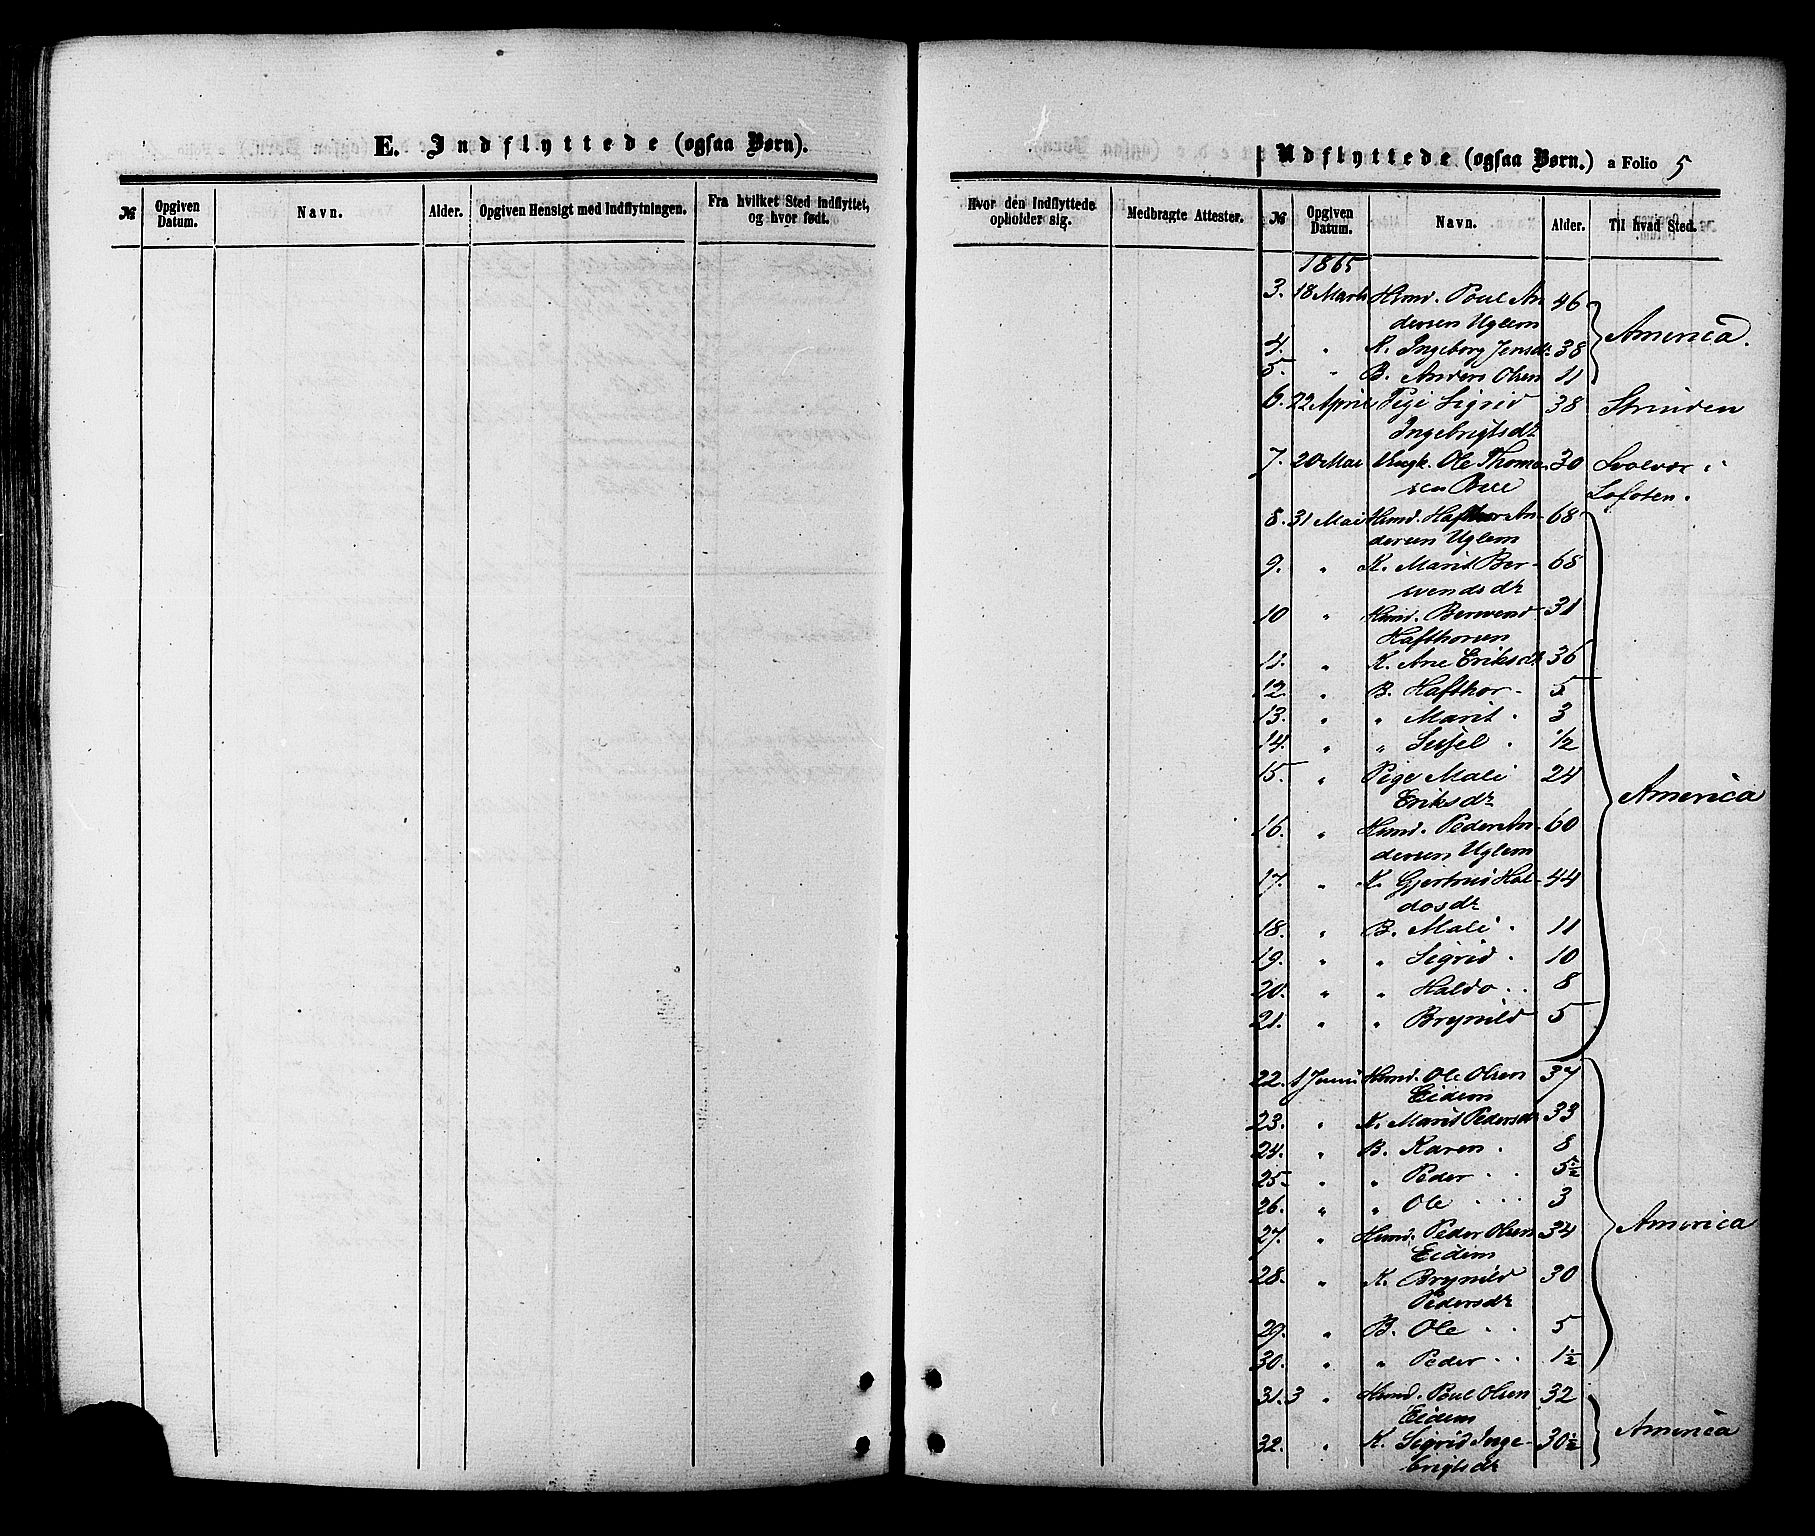 E. Indflyttede (ogsaa Børn).
№ Opgiven Datum. Navn. Alder. Opgiven Hensigt med Indflytningen. Fra hvilket Sted indflyttet, og hvor født.
Hvor den Indflyttede opholder sig. Medbragte Attester.
Udflyttede (ogsaa Børn.) a Folio 5
№ Opgiven Datum. Navn. Alder. Til hvad Sted.
1865
3. 18 Marts Huusmd. Poul An- 46
dersen Uglem
America.
4. " K. Ingeborg Jensdr 38
5. " B. Anders Olsen 11
6. 22 April Pige Sigrid 38 Strinden
Ingebrigtsdr
7. 20 Mai Ungk. Ole Thoma- 30 Svolvær i
sen Lofoten.
8. 31 Mai Hafthor An- 68
dersen Uglem
9. " K. Marit Ber- 68
svendsdr
10 " Bersvend 31
Hafthorsen
11. " K. Ane Eriksdr 36
12. " B. Hafthor. 5
13. " " Marit. 3
14. " " Sissel. 1/2
15. " Pige Mali 24
America
Eriksdr
16. " Peder An- 60
dersen Uglem
17. " K. Gjertrud Hal- 44
dosdr
18. " B. Mali. 11
19. " " Sigrid. 10
20. " " Haldo. . 8
21. " " Brynild 5
22. 1 Juni Ole Olsen 37
Eidem
23. " K. Marit Pedersdr 33
24. " B. Karen. 8
25. " " Peder. . 5 1/2
26. " " Ole . . . 3
America
27. " Peder Olsen 34
Eidem
28. " K. Brynild 30
Pedersdr
29. " B. Ole . . 5
30. " " Peder. . 1 1/2
31. 3 " Poul Olsen 32
Eidem
America
32. " K. Sigrid Inge- 30 1/2
brigtsdr